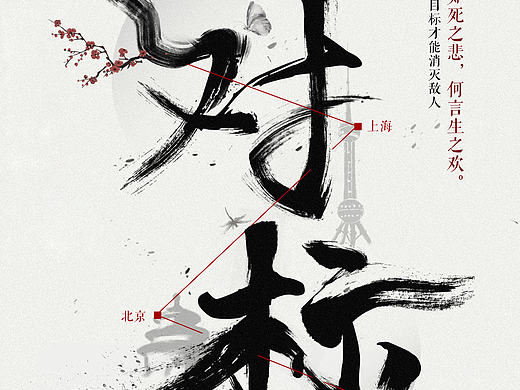 对标
死之悲，何言生之欢。
目标才能消灭敌人
上海
北京